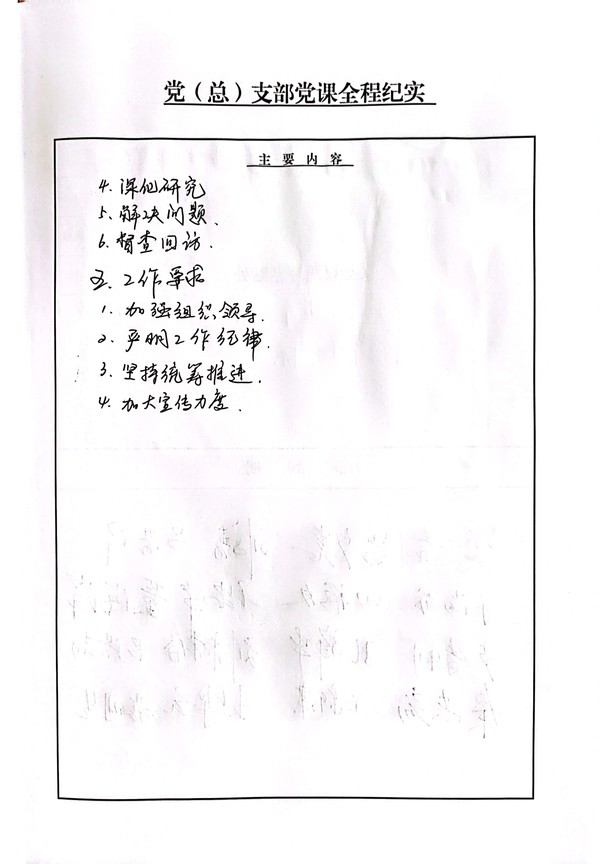 党（总）支部党课全程纪实
主要内容
4. 深化研究
5. 解决问题.
6. 督查回访.
五. 工作要求
1. 加强组织领导.
2. 严明工作纪律.
3. 坚持统筹推进.
4. 加大宣传力度.